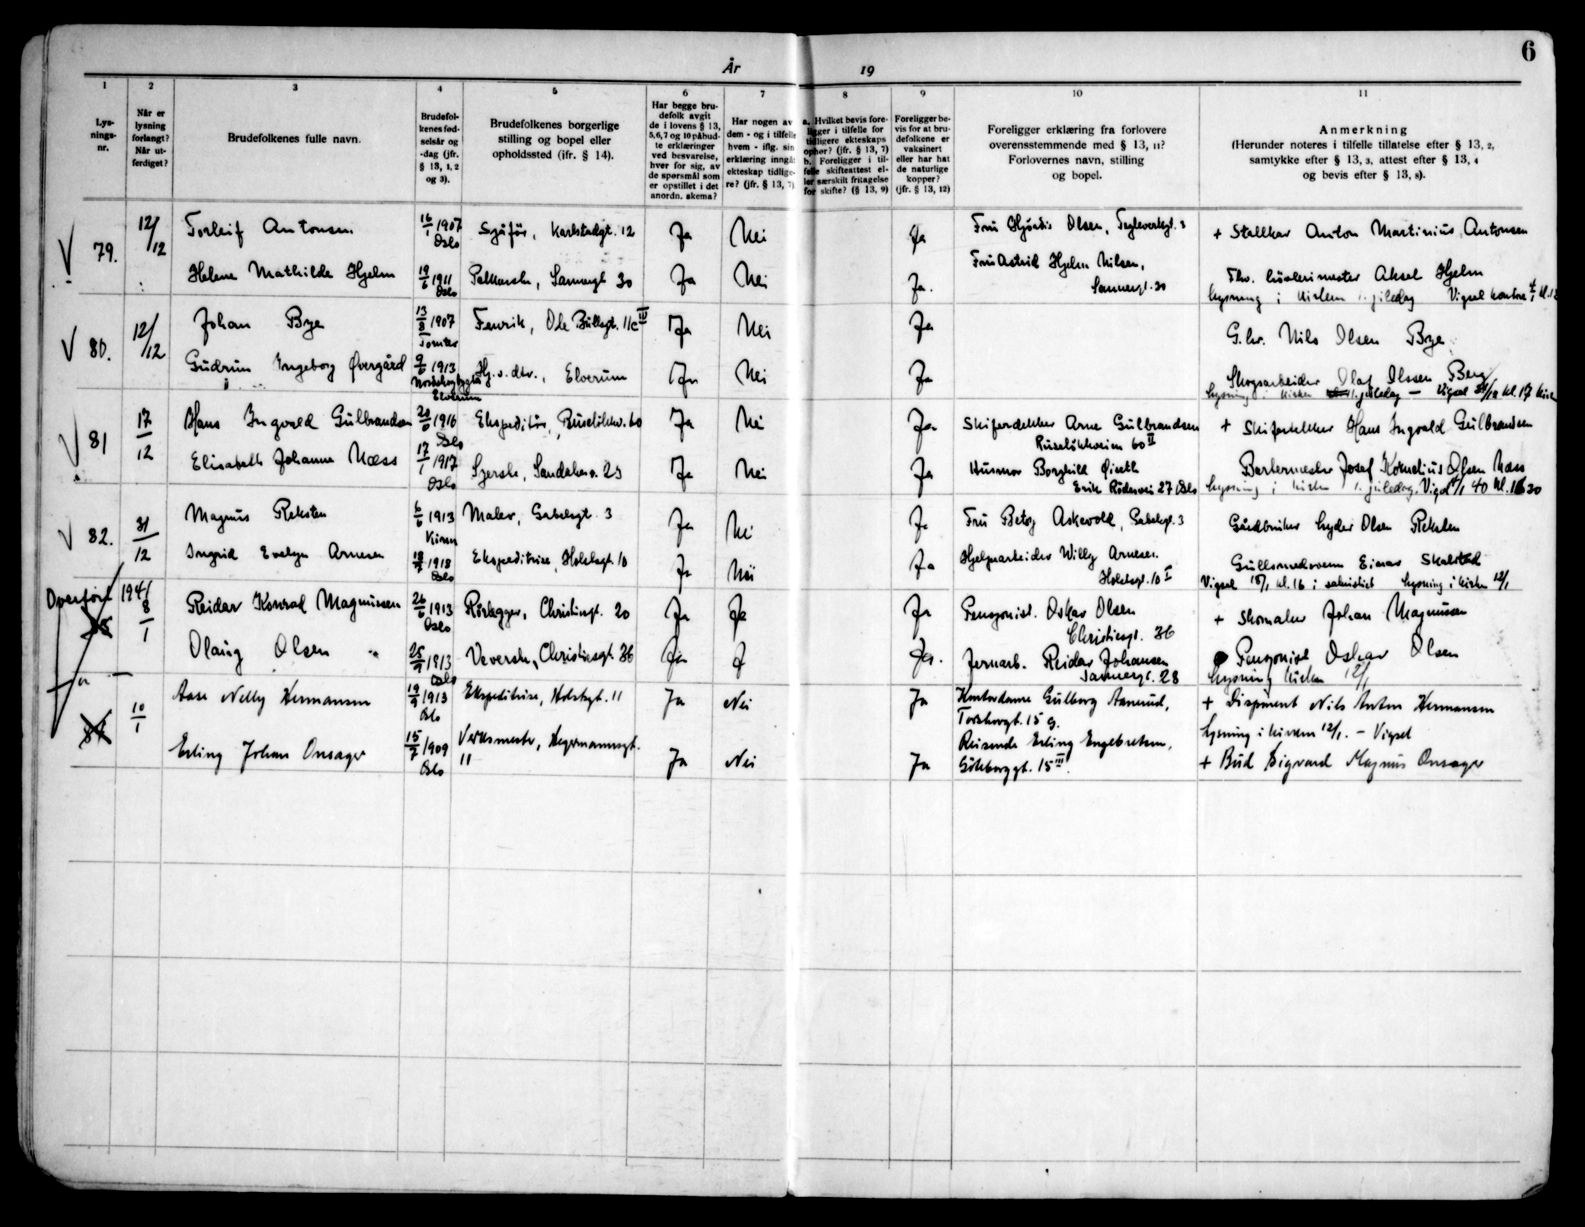 6
År 19
1 2 3 4 5 6 7 8 9 10 11
Lys-
nings-
nr.
Når er
lysning
forlangt?
Når ut-
ferdiget?
Brudefolkenes fulle navn.
Brudefol-
kenes fød-
selsår og
-dag (jfr.
§ 13, 1, 2
og 3).
Brudefolkenes borgerlige
stilling og bopel eller
opholdssted (jfr. § 14).
Har begge bru-
defolk avgit
de i lovens § 13,
5,6,7 og 10 påbud-
te erklæringer
ved besvarelse,
hver for sig, av
de spørsmål som
er opstillet i det
anordn. skema?
Har nogen av
dem - og i tilfelle
hvem - iflg. sin
erklæring inngåt
ekteskap tidlige-
re? (jfr. § 13, 7)
a. Hvilket bevis fore-
ligger i tilfelle for
tidligere ekteskaps
ophør? (jfr. § 13, 7)
b. Foreligger i til-
felle skifteattest el-
ler særskilt fritagelse
for skifte? (§ 13, 9)
Foreligger be-
vis for at bru-
defolkene er
vaksinert
eller har hat
de naturlige
kopper?
(jfr. § 13, 12)
Foreligger erklæring fra forlovere
overensstemmende med § 13, 11?
Forlovernes navn, stilling
og bopel.
Anmerkning
(Herunder noteres i tilfelle tillatelse efter § 13, 2,
samtykke efter § 13, 3, attest efter § 13, 4
og bevis efter § 13, 8).
V 79. 12/12 Torleif Antonsen 16/1 1907 Oslo Sjåför, Karlstadgt. 12 Ja Nei Ja Fru Hjördis Olsen, Teglverksgt. 3 + Stallkar Anton Martinius Antonsen
Helene Mathilde Hjelm 1911 Oslo Sannergt 30 Ja Nei Ja. Fru Astrid Hjelm Nilsen,
Sannergt. 30
Aksel Hjelm
Lysning i kirken 1. juledag Vigsel
V 80. 12/12 Johan Bye 13/8 1907 Fenrik, Ole Bullsgt. 11c IV Ja Nei Ja G.br. Nils Olsen Bye
Gudrun Ingeborg Øvergård 9/6 1913 Elverum Hj.v.dtr., Elverum Ja Nei Ja Skogsarbeider Olaf Olsen Berg
Lysning i kirken 1. juledag — Vigsel
V 81 17/12 Hans Ingvald Gulbrandsen 20/6 1916 Oslo Ekspeditör, Ruselökkv. 60 Ja Nei Ja Skiferdekker Arne Gulbrandsen
Ruselökkveien 60 II
+ Skiferdekker Hans Ingvald Gulbrandsen
Elisabeth Johanne Næss 17/1 1917 Oslo Syerske, Sandakerv. 23 Ja Nei Ja Husmor Borghild
27 Oslo
Josef Kornelius Olsen Næss
Lysning i kirken 1. juledag. Vigsel
V 82. 31/12 Magnus Reksten 6/6 1913 Maler, Gabelsgt. 3 Ja Nei Ja Fru Betsy Askevold, Gabelsgt. 3 Gårdbruker Olsen Reksten
Ingrid Evelyn Arnesen 1918 Oslo Ekspeditrise, Holsbgt. 10 Ja Nei Ja Hjelpearbeider Willy Arnesen
10 I
Einar
Vigsel 18/1 kl. 16 i sakristiet Lysning i kirken 12/1
Overfört 1941
8/1 Reidar Konrad Magnussen 26/6 1913 Oslo Rörlegger, Christiesgt. 20 Ja Ja Ja Pensjonist Oskar Olsen
Christiesgt. 36
+ Skomaker Johan Magnussen
Olaug Olsen 25/9 1913 Oslo Veverske, Christiesgt. 36 Ja Ja. Jernarb. Reidar Johansen
Sannergt. 28
Pensjonist Oskar Olsen
Lysning kirken 12/1
10/1 Aase Nelly Hermansen 19/9 1913 Oslo Ekspeditrise, Holsbgt. 11 Ja Nei Ja Kontordame Gulborg Aamrud,
Torshovgt. 15 g.
+ Disponent Nils Anton Hermansen
Lysning i kirken 12/1. – Vigsel
Erling Johan Onsager 15/7 1909 Oslo Verksmester, Hegermannsgt.
11 Ja Nei Ja Reisende Erling Engebretsen,
Göteborggt. 15 III.
+ Bud Sigvard Magnus Onsager